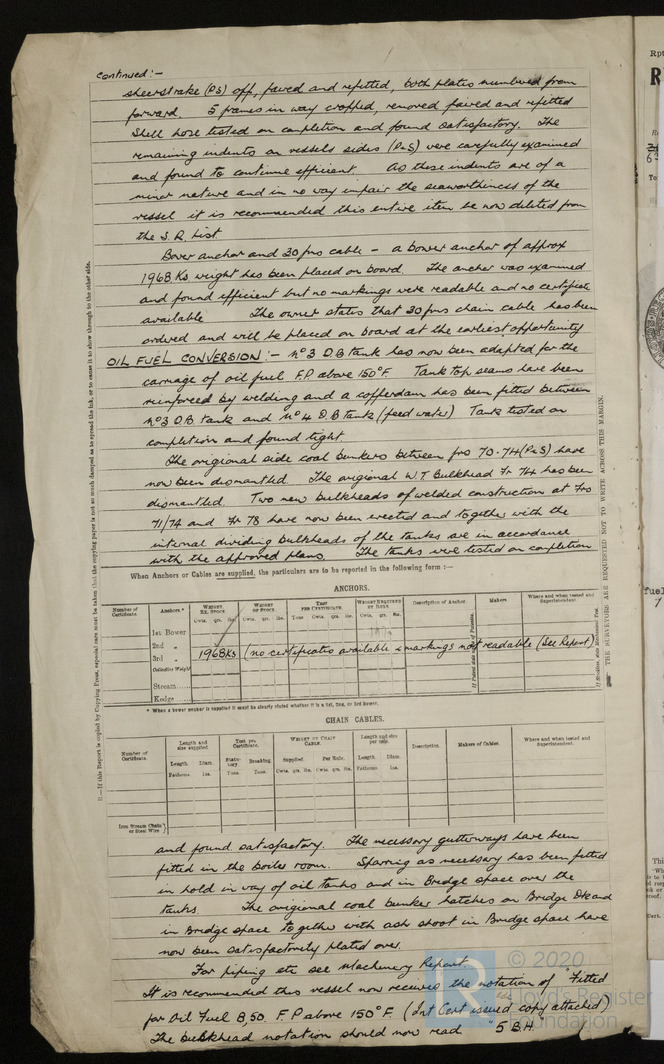 Continued :-
sheerstrake (PS) off, faired and refitted, both plates numbered from
forward. 5 frames in way cropped, removed faired and refitted
Shell hose tested on completion and found satisfactory. The
remaining indents on vessels sides (P&S) were carefully examined
and found to continue efficient. As these indents are of a
minor nature and in no way impair the seaworthiness of the
vessel it is recommended this entire item be now deleted from
the S.R. list.
Bower anchor and 30 fms cable - a bower anchor of approx
1968 Ks weight has been placed on board. The anchor was examined
and found efficient but no markings were readable and no certificate
available The owner states that 30 fms chain cable has been
ordered and will be placed on board at the earliest opportunity
OIL FUEL CONVERSION :- No 3 D.B tank has now been adapted for the
carriage of oil fuel F.P above 150°F. Tank top seams have been
reinforced by welding and a cofferdam has been fitted between
No 3 D.B tank and No 4 D.B tank (feed water) Tank tested on
completion and found tight
The origional side coal bunkers between frs 70-74 (P&S) have
now been dismantled. The origional W.T. Bulkhead Fr 74 has been
dismantled. Two new bulkheads of welded construction at Frs
71/74 and Fr 78 have now been erected and together with the
internal dividing bulkheads of the tanks are in accordance
with the approved plans. The tanks were tested on completion
When Anchors or Cables are supplied, the particulars are to be reported in the following form :—
ANCHORS.
Number of Certificate. Anchors.* Weight Ex. Stock. Weight of Stock. Test per Certificate. Weight Required by Rule. Description of Anchor. Makers Where and when tested and Superintendent.
Cwts. qrs. lbs. Cwts. qrs. lbs. Tons Cwts. qrs. lbs. Cwts. qrs. lbs.
1st Bower
2nd „
3rd „ 1968Ks (no certificates available & markings not readable (See Report)
Collective Weight
Stream
Kedge
* When a bower anchor is supplied it must be clearly stated whether it is a 1st, 2nd, or 3rd Bower.
CHAIN CABLES.
Number of Certificate. Length and size supplied Test per Certificate. Weight of Chain Cable. Length and size per rule. Description. Makers of Cables. Where and when tested and Superintendent.
Length Diam. Statutory Breaking Supplied. Per Rule. Length Diam.
Fathoms Ins. Tons. Tons. Cwts. qrs. lbs. Cwts. qrs. lbs. Fathoms Ins.
Iron Stream Chain or Steel Wire
and found satisfactory. The necessary gutterways have been
fitted in the boiler room. Sparring as necessary has been fitted
in hold in way of oil tanks and in Bridge space over the
tanks. The origional coal bunker hatches on Bridge Dk and
in Bridge space together with ash shoot in Bridge space have
now been satisfactorily plated over.
For piping etc see Machinery Report.
It is recommended this vessel now receives the notation of "Fitted
for Oil Fuel 8,50. F.P above 150°F. (Int Cert issued copy attached)
The bulkhead notation should now read "5 B.H."
THE SURVEYORS ARE REQUESTED NOT TO WRITE ACROSS THIS MARGIN.
If this Report is copied by Copying Press, especial care must be taken that the copying paper is not so much damped as to spread the ink, or to cause it to show through to the other side.
© 2020
Lloyd's Register
Foundation